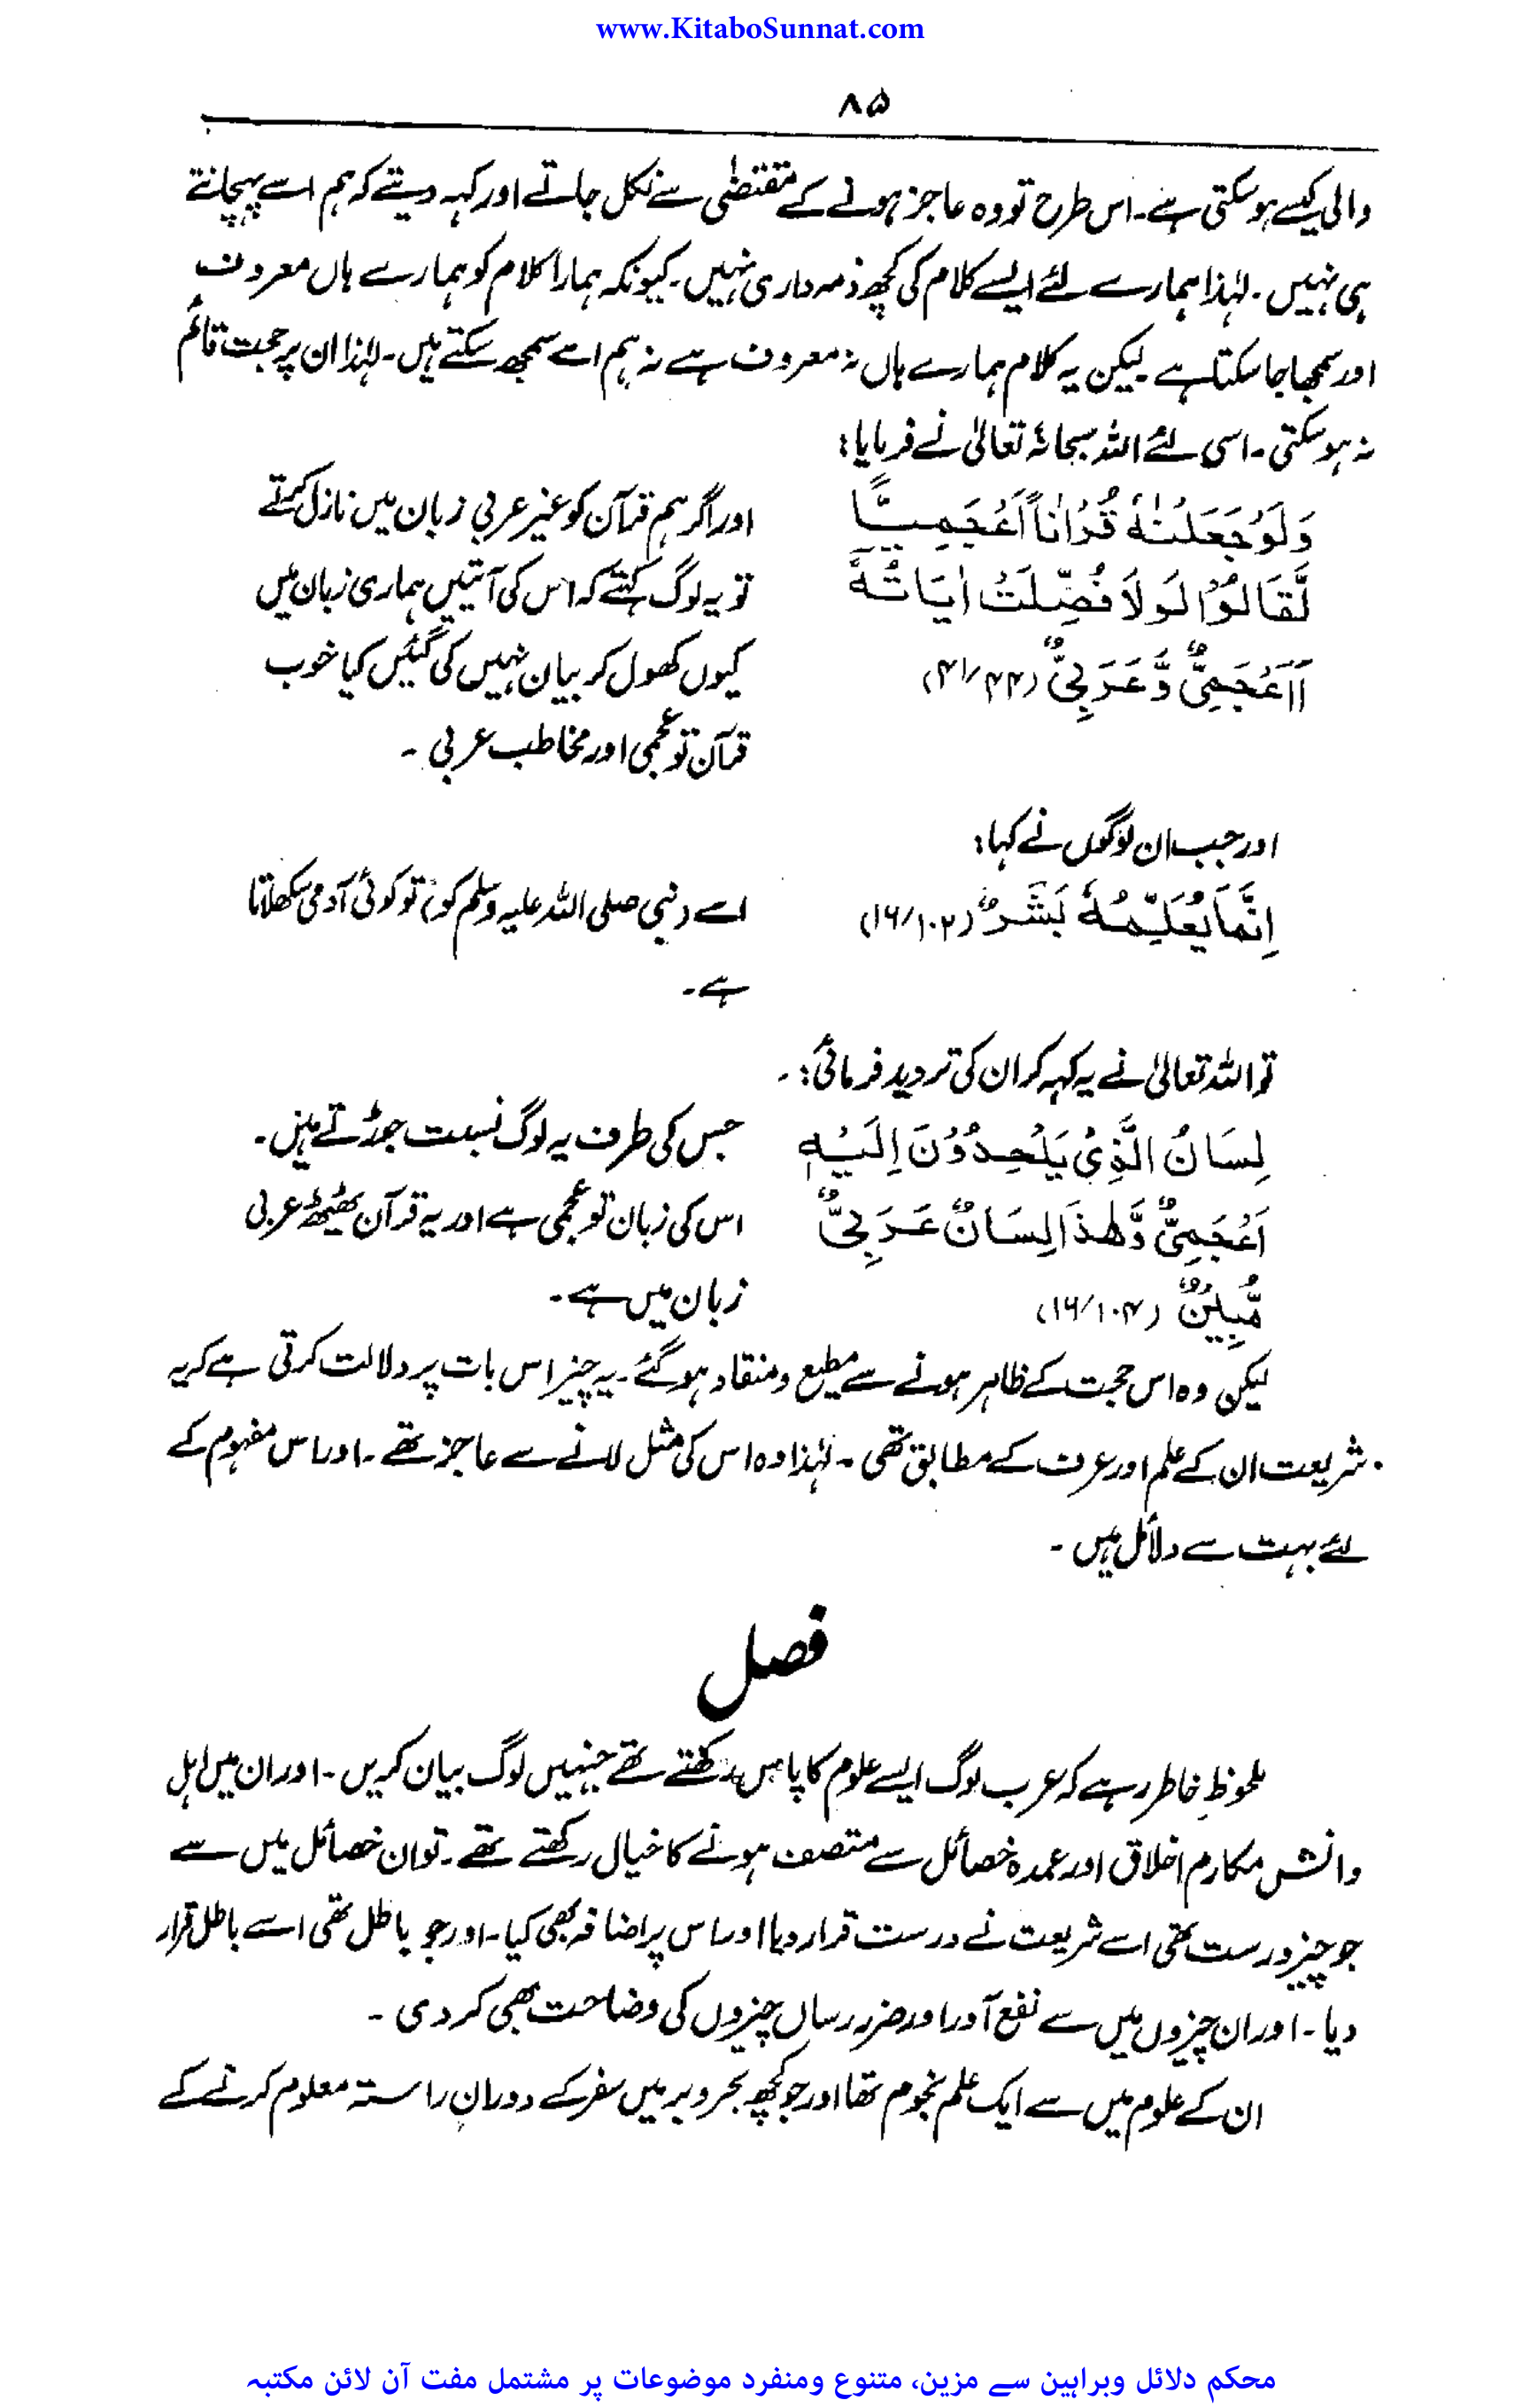 www.KitaboSunnat.com
۸۵
والی کیسے ہو سکتی ہے۔ اس طرح تو وہ عاجز ہونے کے مقتضٰی سے نکل جاتے اور کہہ دیتے کہ ہم اسے پہچانتے
ہی نہیں۔ لہٰذا ہمارے لئے ایسے کلام کی کچھ ذمہ داری نہیں۔ کیونکہ ہمارا کلام کو ہمارے ہاں معروف
اور سمجھا جا سکتا ہے۔ لیکن یہ کلام ہمارے ہاں نہ معروف ہے نہ ہم اسے سمجھ سکتے ہیں۔ لہٰذا ان پر حجت قائم
نہ ہو سکتی۔ اسی لئے اللہ سبحانہٗ تعالیٰ نے فرمایا:
وَلَوْ جَعَلْنٰهُ قُرْاٰناً اَعْجَمِیًّا اور اگر ہم قرآن کو غیر عربی زبان میں نازل کرتے
لَّقَالُوْا لَولَا فُصِّلَتْ اٰیَاتُهٗ تو یہ لوگ کہتے کہ اس کی آیتیں ہماری زبان میں
ءَاَعْجَمِیٌّ وَّعَرَبِیٌّ (۴۱/۴۴) کیوں کھول کر بیان نہیں کی گئیں کیا خوب
قرآن تو عجمی اور مخاطب عربی۔
اور جب ان لوگوں نے کہا:
اِنَّمَا یُعَلِّمُهٗ بَشَرٌ (۱۶/۱۰۲) اسے (نبی صلی اللہ علیہ وسلم کو) تو کوئی آدمی سکھلاتا
ہے۔
تو اللہ تعالیٰ نے یہ کہہ کر ان کی تردید فرمائی:۔
لِسَانُ الَّذِیْ یَلْحِدُوْنَ اِلَیْهِ جس کی طرف یہ لوگ نسبت جوڑتے ہیں۔
اَعْجَمِیٌّ وَّهٰذَا لِسَانٌ عَرَبِیٌّ اس کی زبان تو عجمی ہے اور یہ قرآن ٹھیٹھ عربی
مُّبِیْنٌ (۱۶/۱۰۳) زبان میں ہے۔
لیکن وہ اس حجت کے ظاہر ہونے سے مطیع و منقاد ہو گئے۔ یہ چیز اس بات پر دلالت کرتی ہے کہ یہ
شریعت ان کے علم اور عرف کے مطابق تھی۔ لہٰذا وہ اس کی مثل لانے سے عاجز تھے۔ اور اس مفہوم کے
لئے بہت سے دلائل ہیں۔
فصل
ملحوظِ خاطر رہے کہ عرب لوگ ایسے علوم کا پاس رکھتے تھے جنہیں لوگ بیان کریں۔ اور ان میں اہل
دانش مکارم اخلاق اور عمدہ خصائل سے متصف ہونے کا خیال رکھتے تھے۔ تو ان خصائل میں سے
جو چیز درست تھی اسے شریعت نے درست قرار دیا اور اس پر اضافہ بھی کیا۔ اور جو باطل تھی اسے باطل قرار
دیا۔ اور ان چیزوں میں سے نفع آور اور ضرر رساں چیزوں کی وضاحت بھی کر دی۔
ان کے علوم میں سے ایک علم نجوم تھا اور جو کچھ بحر و بر میں سفر کے دوران راستہ معلوم کرنے کے
محکم دلائل وبراہین سے مزین، متنوع ومنفرد موضوعات پر مشتمل مفت آن لائن مکتبہ